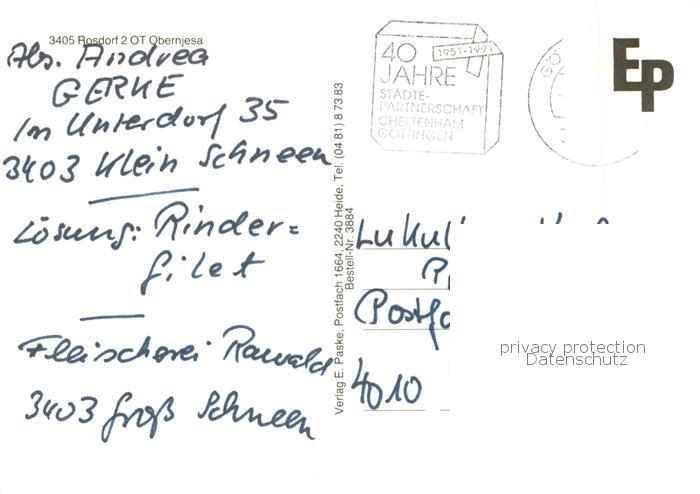 3405 Rosdorf 2 OT Obernjesa
Abs. Andrea
GERKE
Im Unterdorf 35
3403 Klein Schneen
Lösung: Rinder=
filet
Fleischerei Rawald
3403 Groß Schneen
Verlag E. Paske, Postfach 1664, 2240 Heide, Tel. (04 81) 8 73 83
Bestell-Nr. 3884
40
JAHRE
1951-1991
STÄDTE-
PARTNERSCHAFT
CHELTENHAM
GÖTTINGEN
GÖ
Ep
Lukul
Postfa
4010
privacy protection
Datenschutz